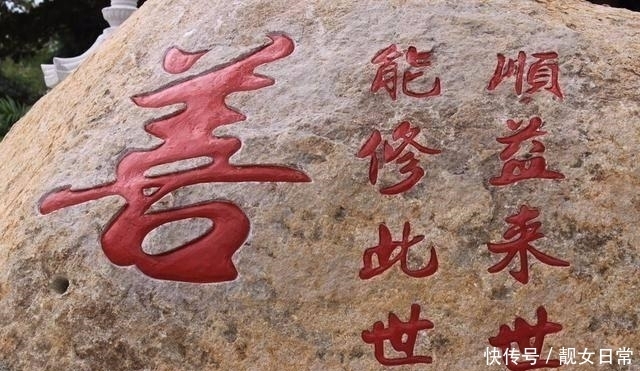 順益来世
能修此世
善
快传号/靓女日常